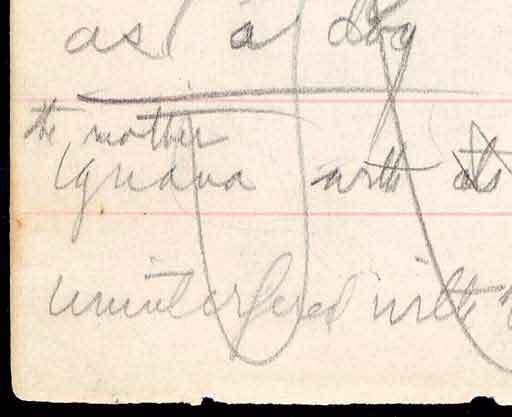 as a dog
the mother
Iguana with its
uninterfered with